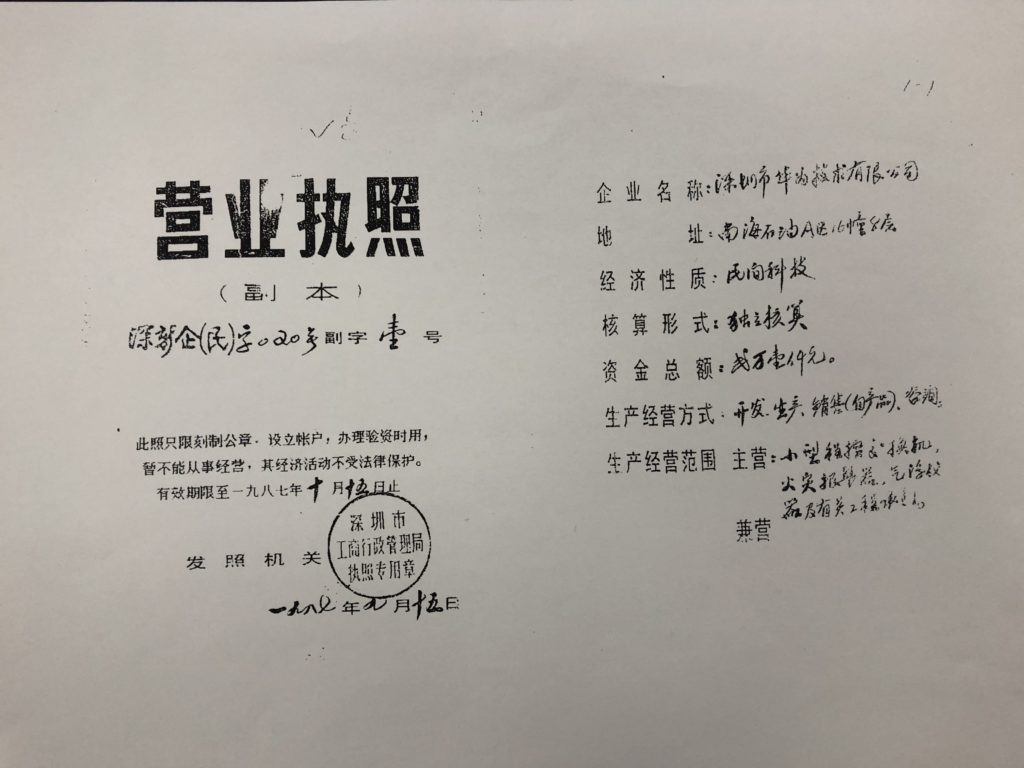 1-1
营业执照
（副本）
深新企(民)字020号副字壹号
此照只限刻制公章、设立帐户，办理验资时用，
暂不能从事经营，其经济活动不受法律保护。
有效期限至一九八七年十月十五日止
发照机关
深圳市
工商行政管理局
执照专用章
一九八七年九月十五日
企业名称：深圳市华为技术有限公司
地址：南海石油A区16幢8层
经济性质：民间科技
核算形式：独立核算
资金总额：贰万壹仟元。
生产经营方式：开发、生产、销售(自产品)、咨询。
生产经营范围 主营：小型程控交换机，
火灾报警器，气浮仪
器及有关工程承
兼营